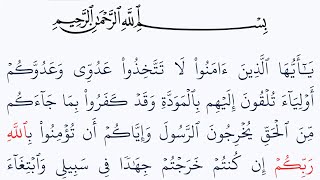 بِسْمِ ٱللَّهِ ٱلرَّحْمَٰنِ ٱلرَّحِيمِ
يَٰٓأَيُّهَا ٱلَّذِينَ ءَامَنُوا۟ لَا تَتَّخِذُوا۟ عَدُوِّى وَعَدُوَّكُمْ
أَوْلِيَآءَ تُلْقُونَ إِلَيْهِم بِٱلْمَوَدَّةِ وَقَدْ كَفَرُوا۟ بِمَا جَآءَكُم
مِّنَ ٱلْحَقِّ يُخْرِجُونَ ٱلرَّسُولَ وَإِيَّاكُمْ أَن تُؤْمِنُوا۟ بِٱللَّهِ
رَبِّكُمْ إِن كُنتُمْ خَرَجْتُمْ جِهَٰدًا فِى سَبِيلِى وَٱبْتِغَآءَ